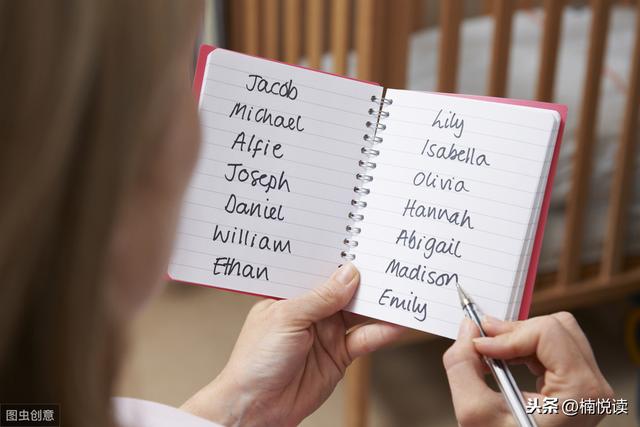 Jacob
Michael
Alfie
Joseph
Daniel
William
Ethan
Lily
Isabella
Olivia
Hannah
Abigail
Madison
Emily
图虫创意
头条 @楠悦读